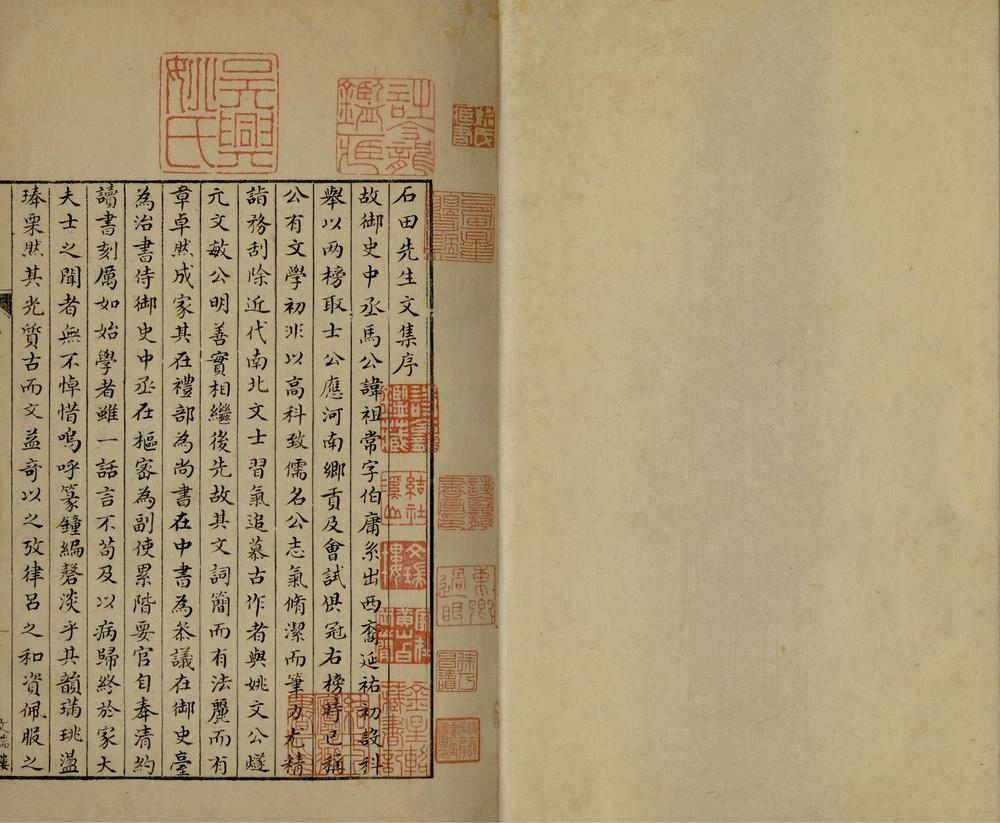 石田先生文集序
故御史中丞馬公諱祖常字伯庸系出西裔延祐初設科
舉以兩榜取士公應河南鄉貢及會試俱冠右榜時已稱
公有文學初非以高科致儒名公志氣脩潔而筆力尤精
詣務刮除近代南北文士習氣追慕古作者與姚文公燧
元文敏公明善實相繼後先故其文詞簡而有法麗而有
章卓然成家其在禮部為尚書在中書為叅議在御史臺
為治書侍御史中丞在樞密為副使累階要官自奉清約
讀書刻厲如始學者雖一話言不苟及以病歸終於家大
夫士之聞者無不悼惜嗚呼篆鐘編磬淡乎其韻瑀珧溫
琫栗然其光質古而文益奇以之攷律呂之和資佩服之
吳興姚氏
結社溪山
東卿過眼
文瑞樓